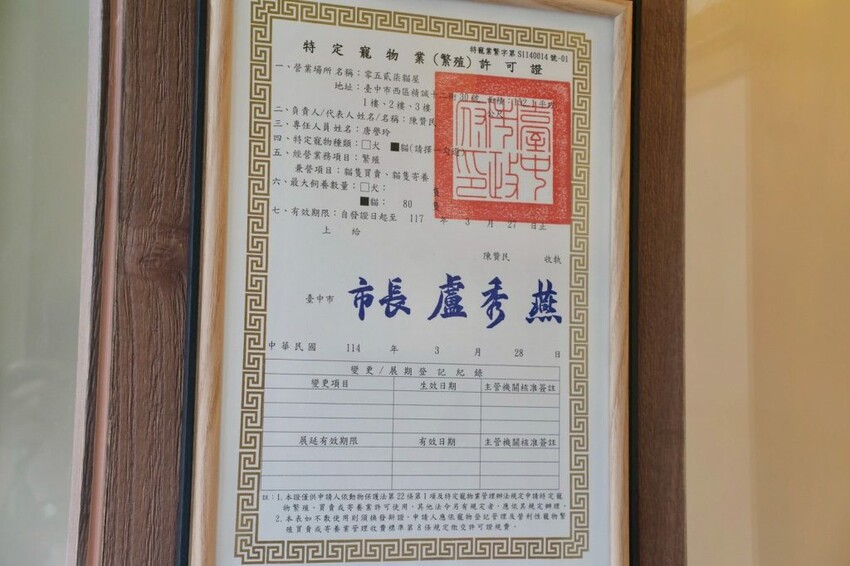 特寵業繁字第S1140014號-01
特定寵物業(繁殖)許可證
一、營業場所名稱：零五貳柒貓屋
地址：臺中市西區精誠十
1樓、2樓、3樓
二、負責人/代表人姓名/名稱：陳賢民
三、專任人員姓名：唐學玲
四、特定寵物種類：□犬 ■貓(請擇一
五、經營業務項目：繁殖
兼營項目：貓隻買賣、貓隻寄養
六、最大飼養數量：□犬： 隻
■貓： 80 隻
七、有效期限：自發證日起至 117 年 3 月 27 日止
上 給
陳賢民 收執
臺中市政府印
臺中市 市長 盧秀燕
中華民國 114 年 3 月 28 日
變更/展期登記紀錄
變更項目 生效日期 主管機關核准簽註
展延有效期限 有效日期 主管機關核准簽註
註：1.本證僅供申請人依動物保護法第22條第1項及特定寵物業管理辦法規定申請特定寵
物繁殖、買賣或寄養業許可使用，其他法令另有規定者，應依其規定辦理。
2.本表如不敷使用則須換發新證，申請人應依寵物登記管理及營利性寵物繁
殖買賣或寄養業管理收費標準第8條規定繳交許可證規費。